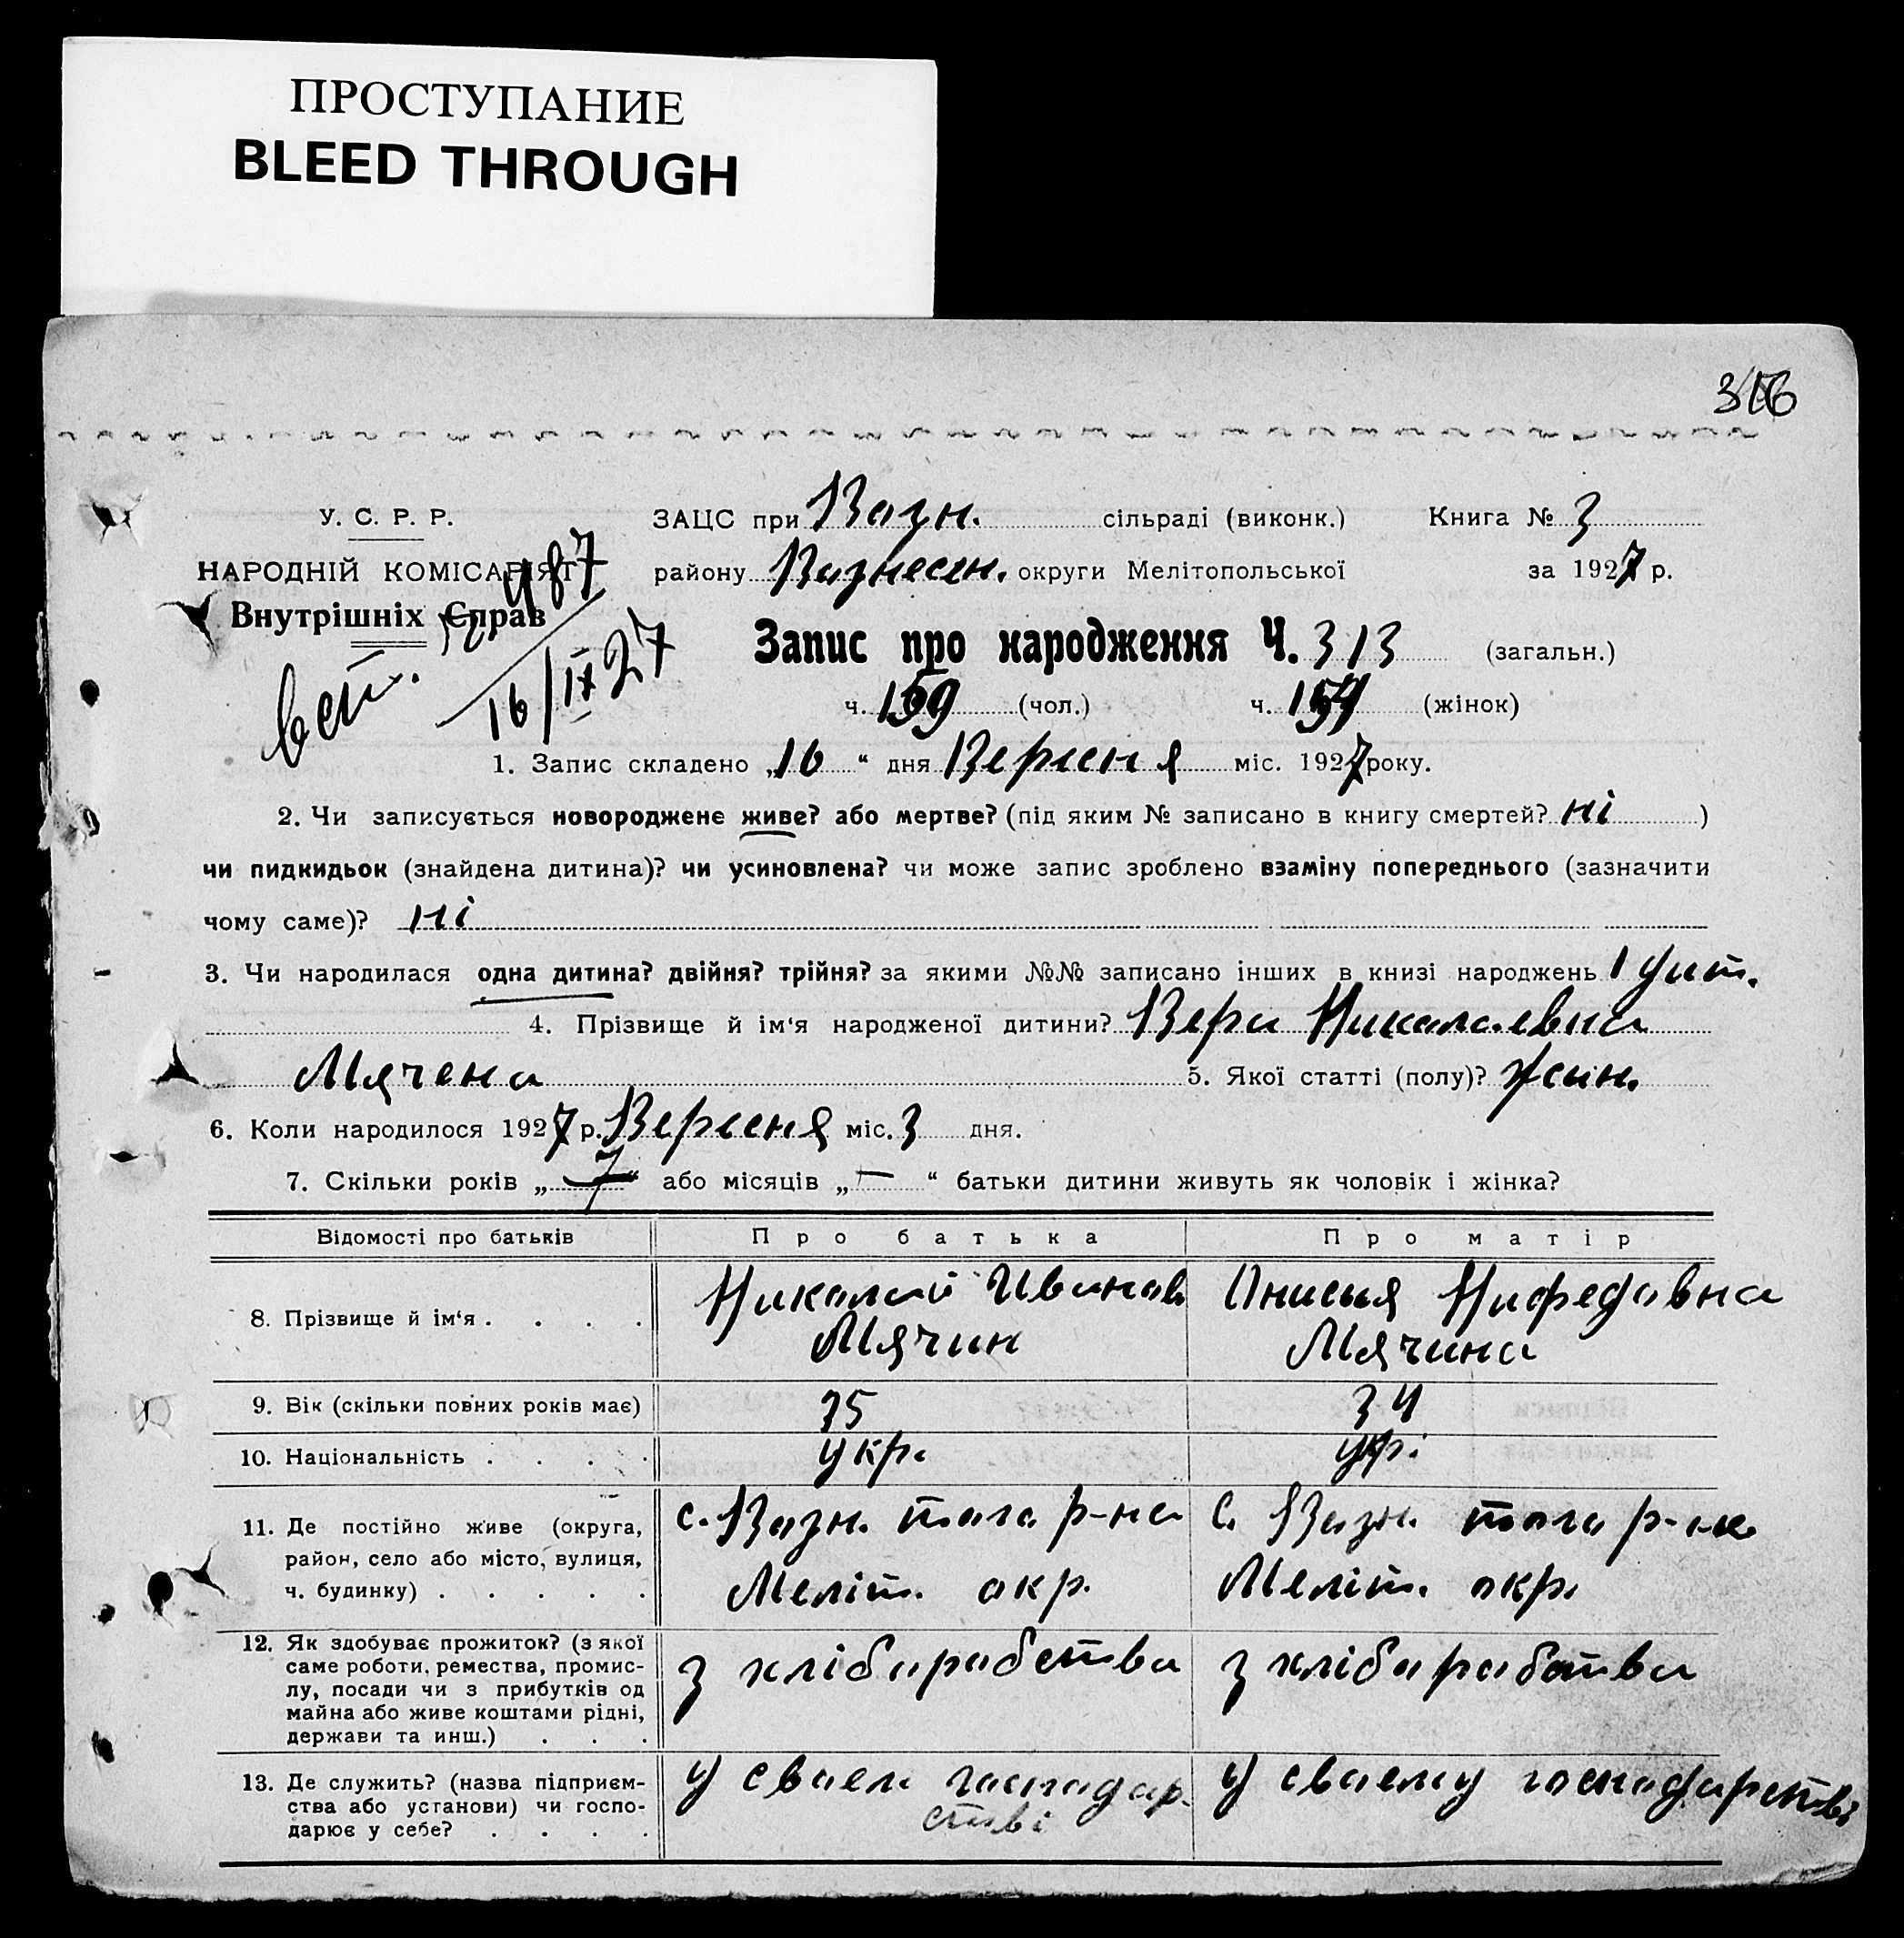 ПРОСТУПАНИЕ
BLEED THROUGH
У. С. Р. Р.
НАРОДНІЙ КОМІСАРІЯТ
Внутрішніх Справ
487
16/IX 27
ЗАЦС при Вазн. сільраді (виконк.) Книга № 3
району Вазнесен. округи Мелітопольської за 1927 р.
Запис про народження Ч. 313 (загальн.)
ч. 159 (чол.) ч. 154 (жінок)
1. Запис складено „16“ дня Вересня міс. 1927 року.
2. Чи записується новороджене живе? або мертве? (під яким № записано в книгу смертей? ні )
чи пидкидьок (знайдена дитина)? чи усиновлена? чи може запис зроблено взаміну попереднього (зазначити
чому саме)? ні
3. Чи народилася одна дитина? двійня? трійня? за якими №№ записано інших в книзі народжень 1 дит.
4. Прізвище й ім‘я народженої дитини? Вера Никалаевна
Мячена 5. Якої статті (полу)? жын.
6. Коли народилося 1927 р. Вересня міс. 3 дня.
7. Скільки років „7“ або місяців „—“ батьки дитини живуть як чоловік і жінка?
Відомості про батьків Про батька Про матір
8. Прізвище й ім‘я . . . . Николай Иванов Анисья Нифедавна
Мячин Мячина
9. Вік (скільки повних років має) 35 34
10. Національність . . . . укр. укр.
11. Де постійно живе (округа, с. Вазн. тага р-на с. Вазн. тага р-на
район, село або місто, вулиця,
ч. будинку) . . . . . Меліт. акр. Меліт. акр.
12. Як здобуває прожиток? (з якої
саме роботи, ремества, промис- з хлібарабства з хлібарабства
лу, посади чи з прибутків од
майна або живе коштами рідні,
держави та инш.) . . .
13. Де служить? (назва підприєм- у сваем гаспадар- у сваему госпадарстві
ства або установи) чи госпо- стві
дарює у себе? . . . .